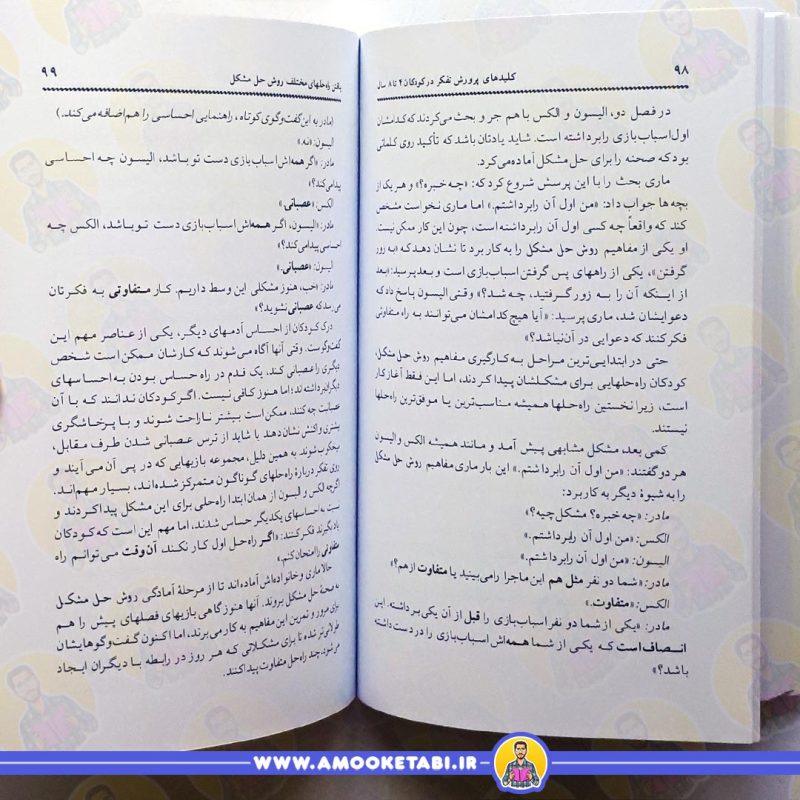 ۹۸
کلیدهای پرورش تفکر در کودکان ۴ تا ۸ سال
در فصل دو، الیسون و الکس با هم جر و بحث می‌کردند که کدامشان
اول اسباب‌بازی را برداشته است. شاید یادتان باشد که تأکید روی کلماتی
بود که صحنه را برای حل مشکل آماده می‌کرد.
ماری بحث را با این پرسش شروع کرد که: «چه خبره؟» و هر یک از
بچه‌ها جواب داد: «من اول آن را برداشتم.» اما ماری نخواست مشخص
کند که واقعاً چه کسی اول آن را برداشته است، چون این کار ممکن نیست.
او یکی از مفاهیم روش حل مشکل را به کار برد تا نشان دهد که «به زور
گرفتن»، یکی از راههای پس گرفتن اسباب‌بازی است و بعد پرسید: «بعد
از اینکه آن را به زور گرفتید، چه شد؟» وقتی الیسون پاسخ داد که
دعوایشان شد، ماری پرسید: «آیا هیچ کدامشان می‌توانند به راه متفاوتی
فکر کنند که دعوایی در آن نباشد؟»
حتی در ابتدایی‌ترین مراحل به کارگیری مفاهیم روش حل مشکل،
کودکان راه‌حلهایی برای مشکلشان پیدا کردند، اما این فقط آغاز کار
است، زیرا نخستین راه‌حلها همیشه مناسب‌ترین یا موفق‌ترین راه‌حلها
نیستند.
کمی بعد، مشکل مشابهی پیش آمد و مانند همیشه الکس و الیسون
هر دو گفتند: «من اول آن را برداشتم.» این بار ماری مفاهیم روش حل مشکل
را به شیوهٔ دیگر به کار برد:
مادر: «چه خبره؟ مشکل چیه؟»
الکس: «من اول آن را برداشتم.»
الیسون: «من اول آن را برداشتم.»
مادر: «شما دو نفر مثل هم این ماجرا را می‌بینید یا متفاوت از هم؟»
الکس: «متفاوت.»
مادر: «یکی از شما دو نفر اسباب‌بازی را قبل از آن یکی برداشته. این
انصاف است که یکی از شما همه‌اش اسباب‌بازی را در دست داشته
باشد؟»
یافتن راه‌حلهای مختلف روش حل مشکل
۹۹
(مادر به این گفت‌وگوی کوتاه، راهنمایی احساسی را هم اضافه می‌کند.)
الیسون: «نه.»
مادر: «اگر همه‌اش اسباب‌بازی دست تو باشد، الیسون چه احساسی
پیدا می‌کند؟»
الکس: «عصبانی.»
مادر: «الیسون، اگر همه‌اش اسباب‌بازی دست تو باشد، الکس چه
احساسی پیدا می‌کند؟»
الیسون: «عصبانی.»
مادر: «خب، هنوز مشکلی این وسط داریم. کار متفاوتی به فکرتان
می‌رسد که عصبانی نشوید؟»
درک کودکان از احساس آدمهای دیگر، یکی از عناصر مهم این
گفت‌وگوست. وقتی آنها آگاه می‌شوند که کارشان ممکن است شخص
دیگری را عصبانی کند، یک قدم در راه حساس بودن به احساسهای
دیگران برداشته‌اند؛ اما هنوز کافی نیست. اگر کودکان ندانند که با آن
عصبانیت چه کنند، ممکن است بیشتر ناراحت شوند و با پرخاشگری
بیشتری واکنش نشان دهند یا شاید از ترس عصبانی شدن طرف مقابل،
سرکوب شوند. به همین دلیل، مجموعه بازیهایی که در پی آن می‌آیند و
روی تفکر دربارهٔ راه‌حلهای گوناگون متمرکز شده‌اند، بسیار مهم‌اند.
اگرچه الکس و الیسون از همان ابتدا راه‌حلی برای این مشکل پیدا کردند و
به احساسهای یکدیگر حساس شدند، اما مهم این است که کودکان
یاد بگیرند فکر کنند: «اگر راه‌حل اول کار نکند، آن وقت می‌توانم راه
متفاوتی را امتحان کنم.»
حالا ماری و خانواده‌اش آماده‌اند تا از مرحلهٔ آمادگی روش حل مشکل
به صحنهٔ حل مشکل بروند. آنها هنوز گاهی بازیهای فصلهای پیش را هم
برای مرور و تمرین این مفاهیم به کار می‌برند، اما اکنون گفت‌وگوهایشان
طولانی‌تر شده تا برای مشکلاتی که هر روز در رابطه با دیگران ایجاد
می‌شود، چند راه‌حل متفاوت پیدا کنند.
WWW.AMOOKETABI.IR